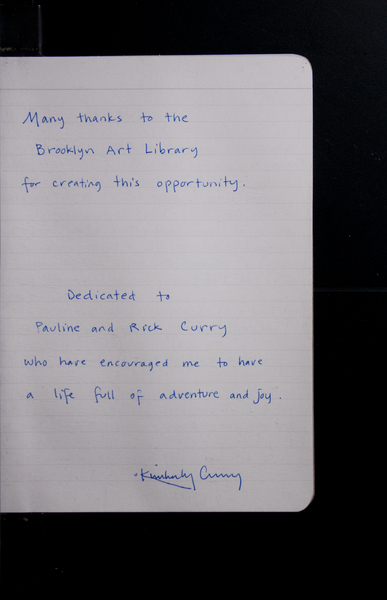 Many thanks to the
Brooklyn Art Library
for creating this opportunity.
Dedicated to
Pauline and Rick Curry
who have encouraged me to have
a life full of adventure and joy.
-Kimberly Curry